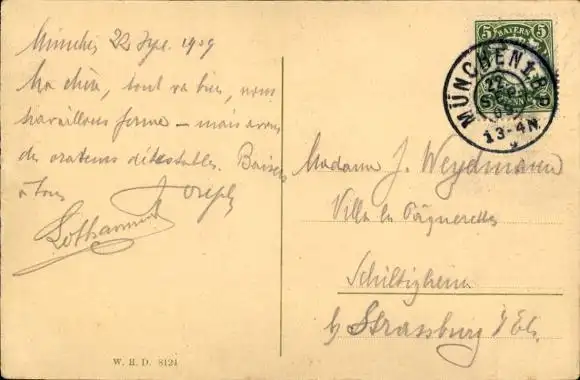 München 22 Sept. 1909
Ma chère, tout va bien, nous
travaillons ferme – mais avons
des orateurs détestables. Baisers
à tous Joseph
W. H. D. 8124
5 BAYERN 5
MÜNCHEN 1. B. P.
22
SEP
09
3-4 N.
Madame J. Weydmann
Villa les Pâquerettes
Schiltigheim
b/ Strassburg i/ Els.